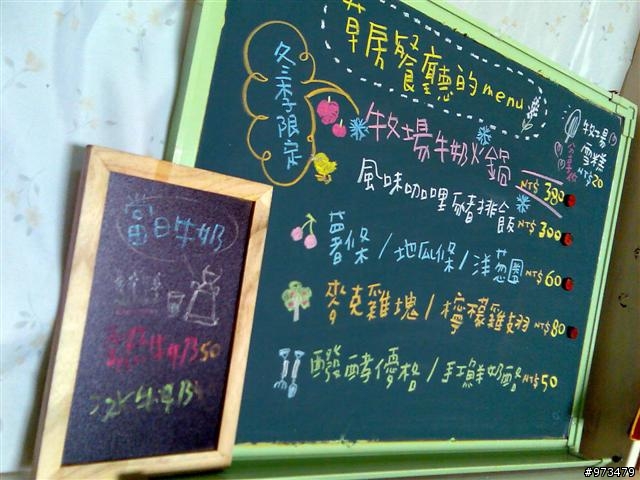 草房餐廳的menu
冬季限定
牧場牛奶火鍋
NT$ 380
牧場
雪糕
NT$20
風味咖哩豬排飯
NT$ 300
薯條/地瓜條/洋蔥圈 NT$ 60
麥克雞塊/檸檬雞翅 NT$ 80
醱酵優格/手工鮮奶酪 NT$ 50
當日牛奶
50
#973479